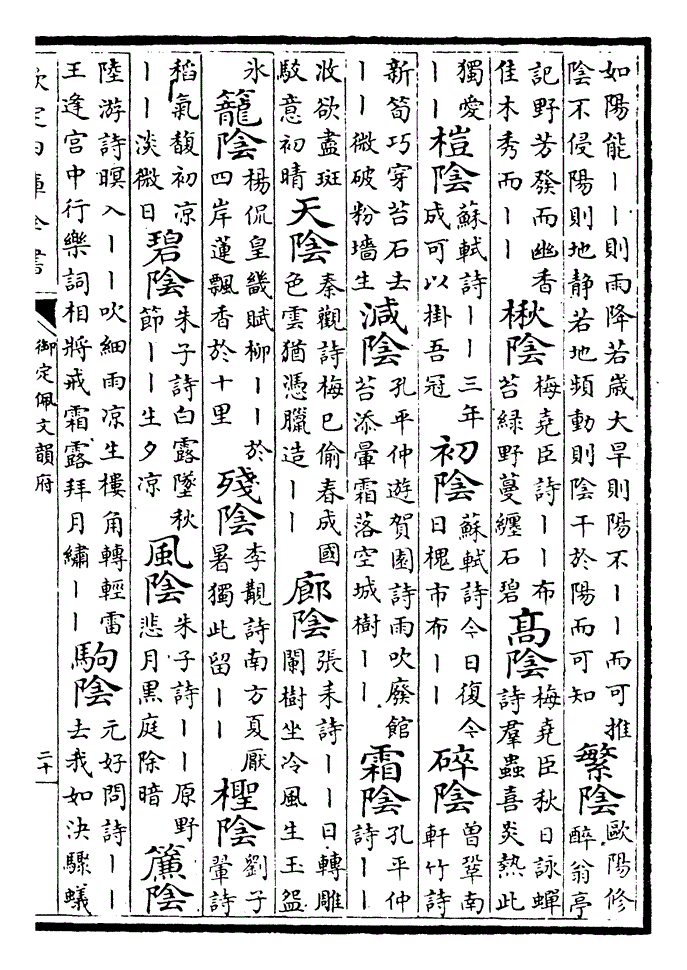 如陽能丨丨則雨降若歲大旱則陽不丨丨而可推
陰不侵陽則地静若地頻動則陰干於陽而可知
繁陰
歐陽修
醉翁亭
記野芳發而幽香
佳木秀而丨丨
楸陰
梅堯臣詩丨丨布
苔緑野蔓纒石碧
髙陰
梅堯臣秋日詠蟬
詩羣蟲喜炎熱此
獨愛
丨丨
榿陰
蘇軾詩丨丨三年
成可以掛吾冠
初陰
蘇軾詩今日復今
日槐市布丨丨
碎陰
曽鞏南
軒竹詩
新筍巧穿苔石去
丨丨微破粉墻生
減陰
孔平仲遊賀園詩雨吹廢館
苔添暈霜落空城樹丨丨
霜陰
孔平仲
詩丨丨
收欲盡斑
駁意初晴
天陰
秦觀詩梅已偷春成國
色雲猶憑臘造丨丨
廊陰
張耒詩丨丨日轉雕
闌樹坐冷風生玉盌
氷
籠陰
楊侃皇畿賦柳丨丨於
四岸蓮飄香於十里
殘陰
李覯詩南方夏厭
暑獨此留丨丨
檉陰
劉子
翬詩
稻氣馥初凉
丨丨淡微日
碧陰
朱子詩白露墜秋
節丨丨生夕凉
風陰
朱子詩丨丨原野
悲月黒庭除暗
簾陰
陸游詩暝入丨丨吹細雨凉生樓角轉輕雷
王逢宫中行樂詞相將戒霜露拜月繡丨丨
駒陰
元好問詩丨丨
去我如決驟蟻
欽定四庫全書
御定佩文韻府
二十